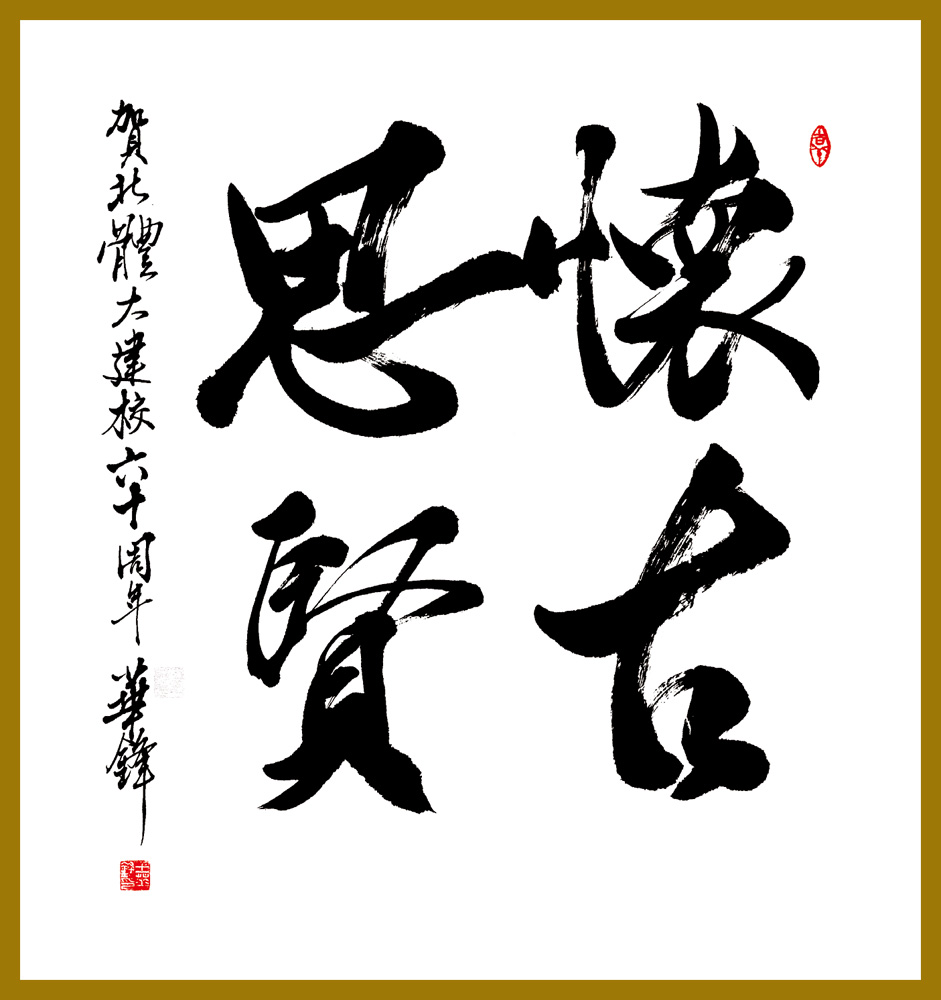 懷古
思賢
賀北體大建校六十周年 華鋒